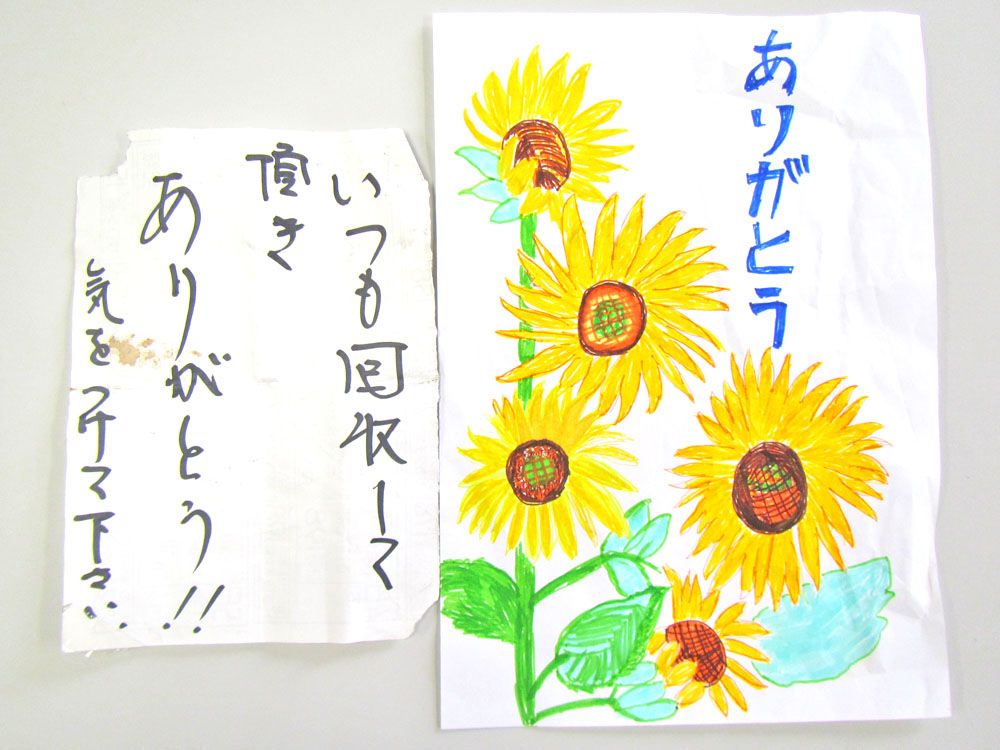 ありがとう
いつも回収して
頂き
ありがとう!!
気をつけて下さい